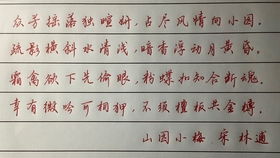 众芳摇落独暄妍，占尽风情向小园。
疏影横斜水清浅，暗香浮动月黄昏。
霜禽欲下先偷眼，粉蝶如知合断魂。
幸有微吟可相狎，不须檀板共金樽。
山园小梅 宋 林逋